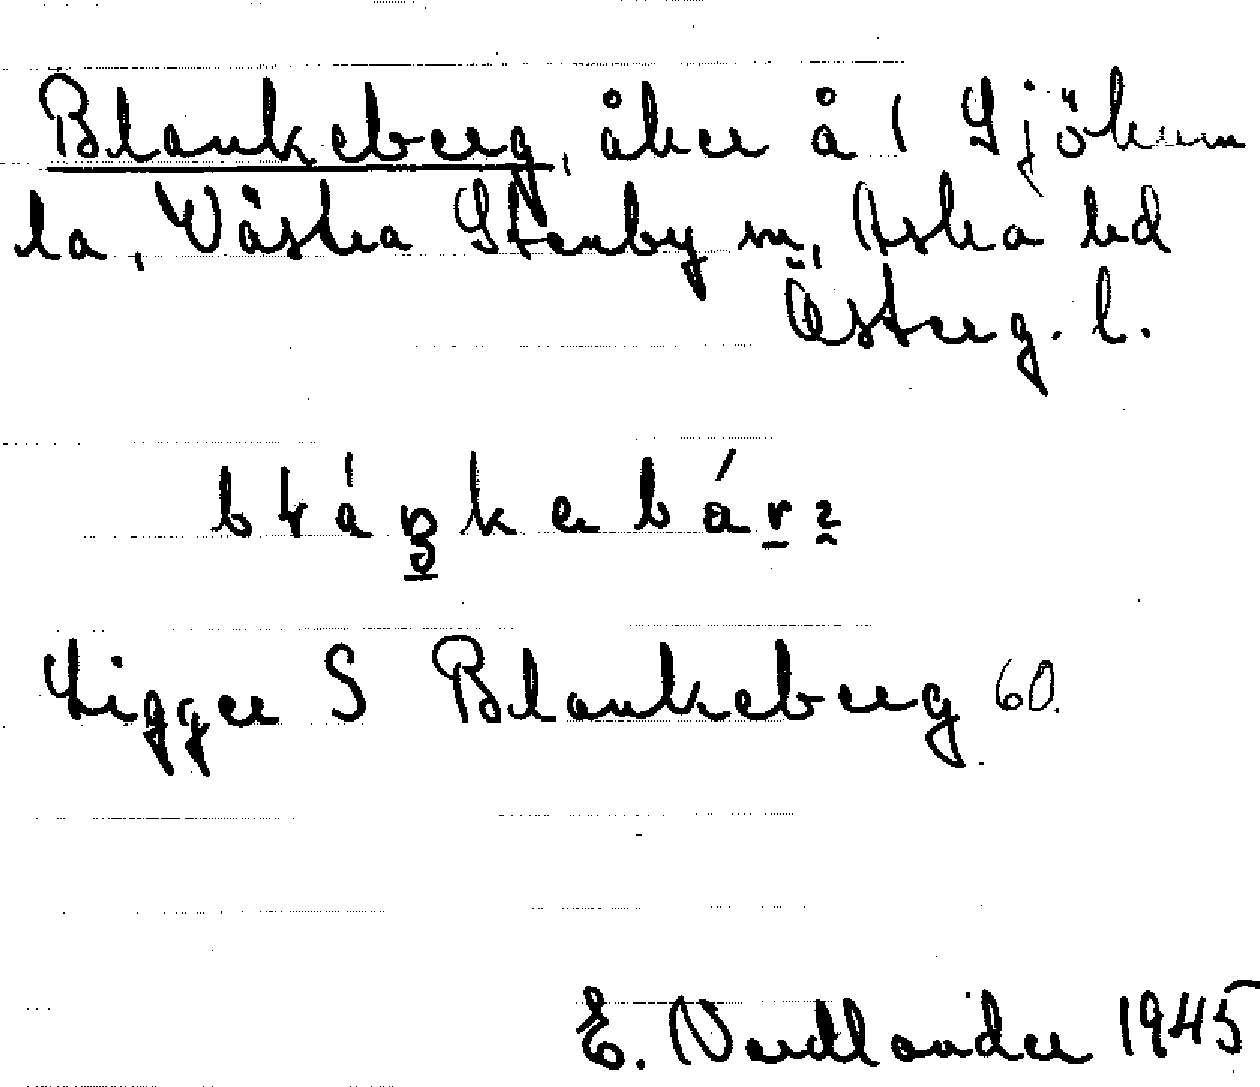 Blankeberg, åker å 1 Sjökum
la, Västra Stenby sn, Aska hd
Österg. l.
Ligger S Blankeberg 60.
E. Nordlander 1945